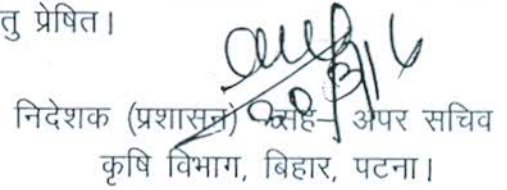 तु प्रेषित।
निदेशक (प्रशासन) –सह– अपर सचिव
कृषि विभाग, बिहार, पटना।